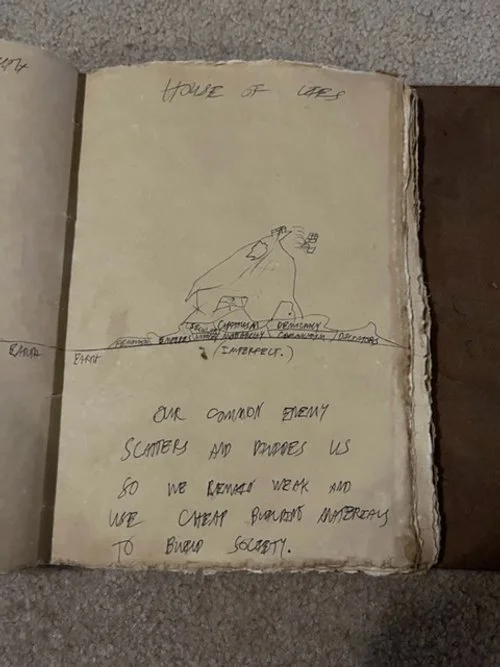 HOUSE OF LIES
CAPITALISM DEMOCRACY
EMPIRE MONARCHY COMMUNISM
EARTH
EARTH
(IMPERFECT.)
OUR COMMON ENEMY
SCATTERS AND DIVIDES US
SO WE REMAIN WEAK AND
USE CHEAP BUILDING MATERIALS
TO BUILD SOCIETY.